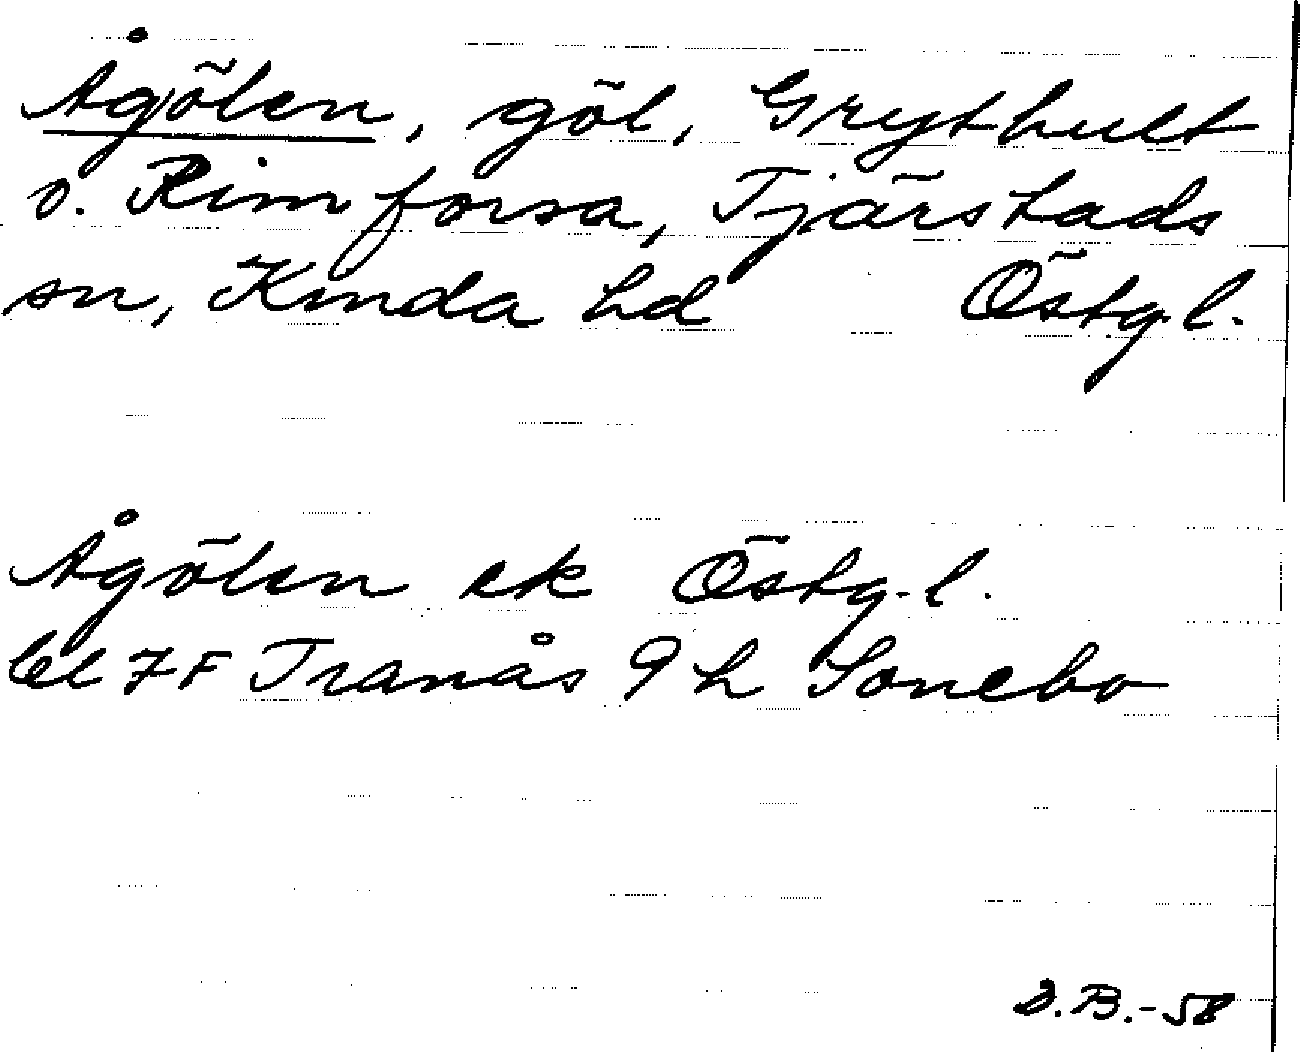 Ågölen, göl, Grythult
o. Rimforsa, Tjärstads
sn, Kinda hd Östg. l.
Ågölen ek Östg. l.
bl 7F Tranås 9 h Sonebo
D.B.-58